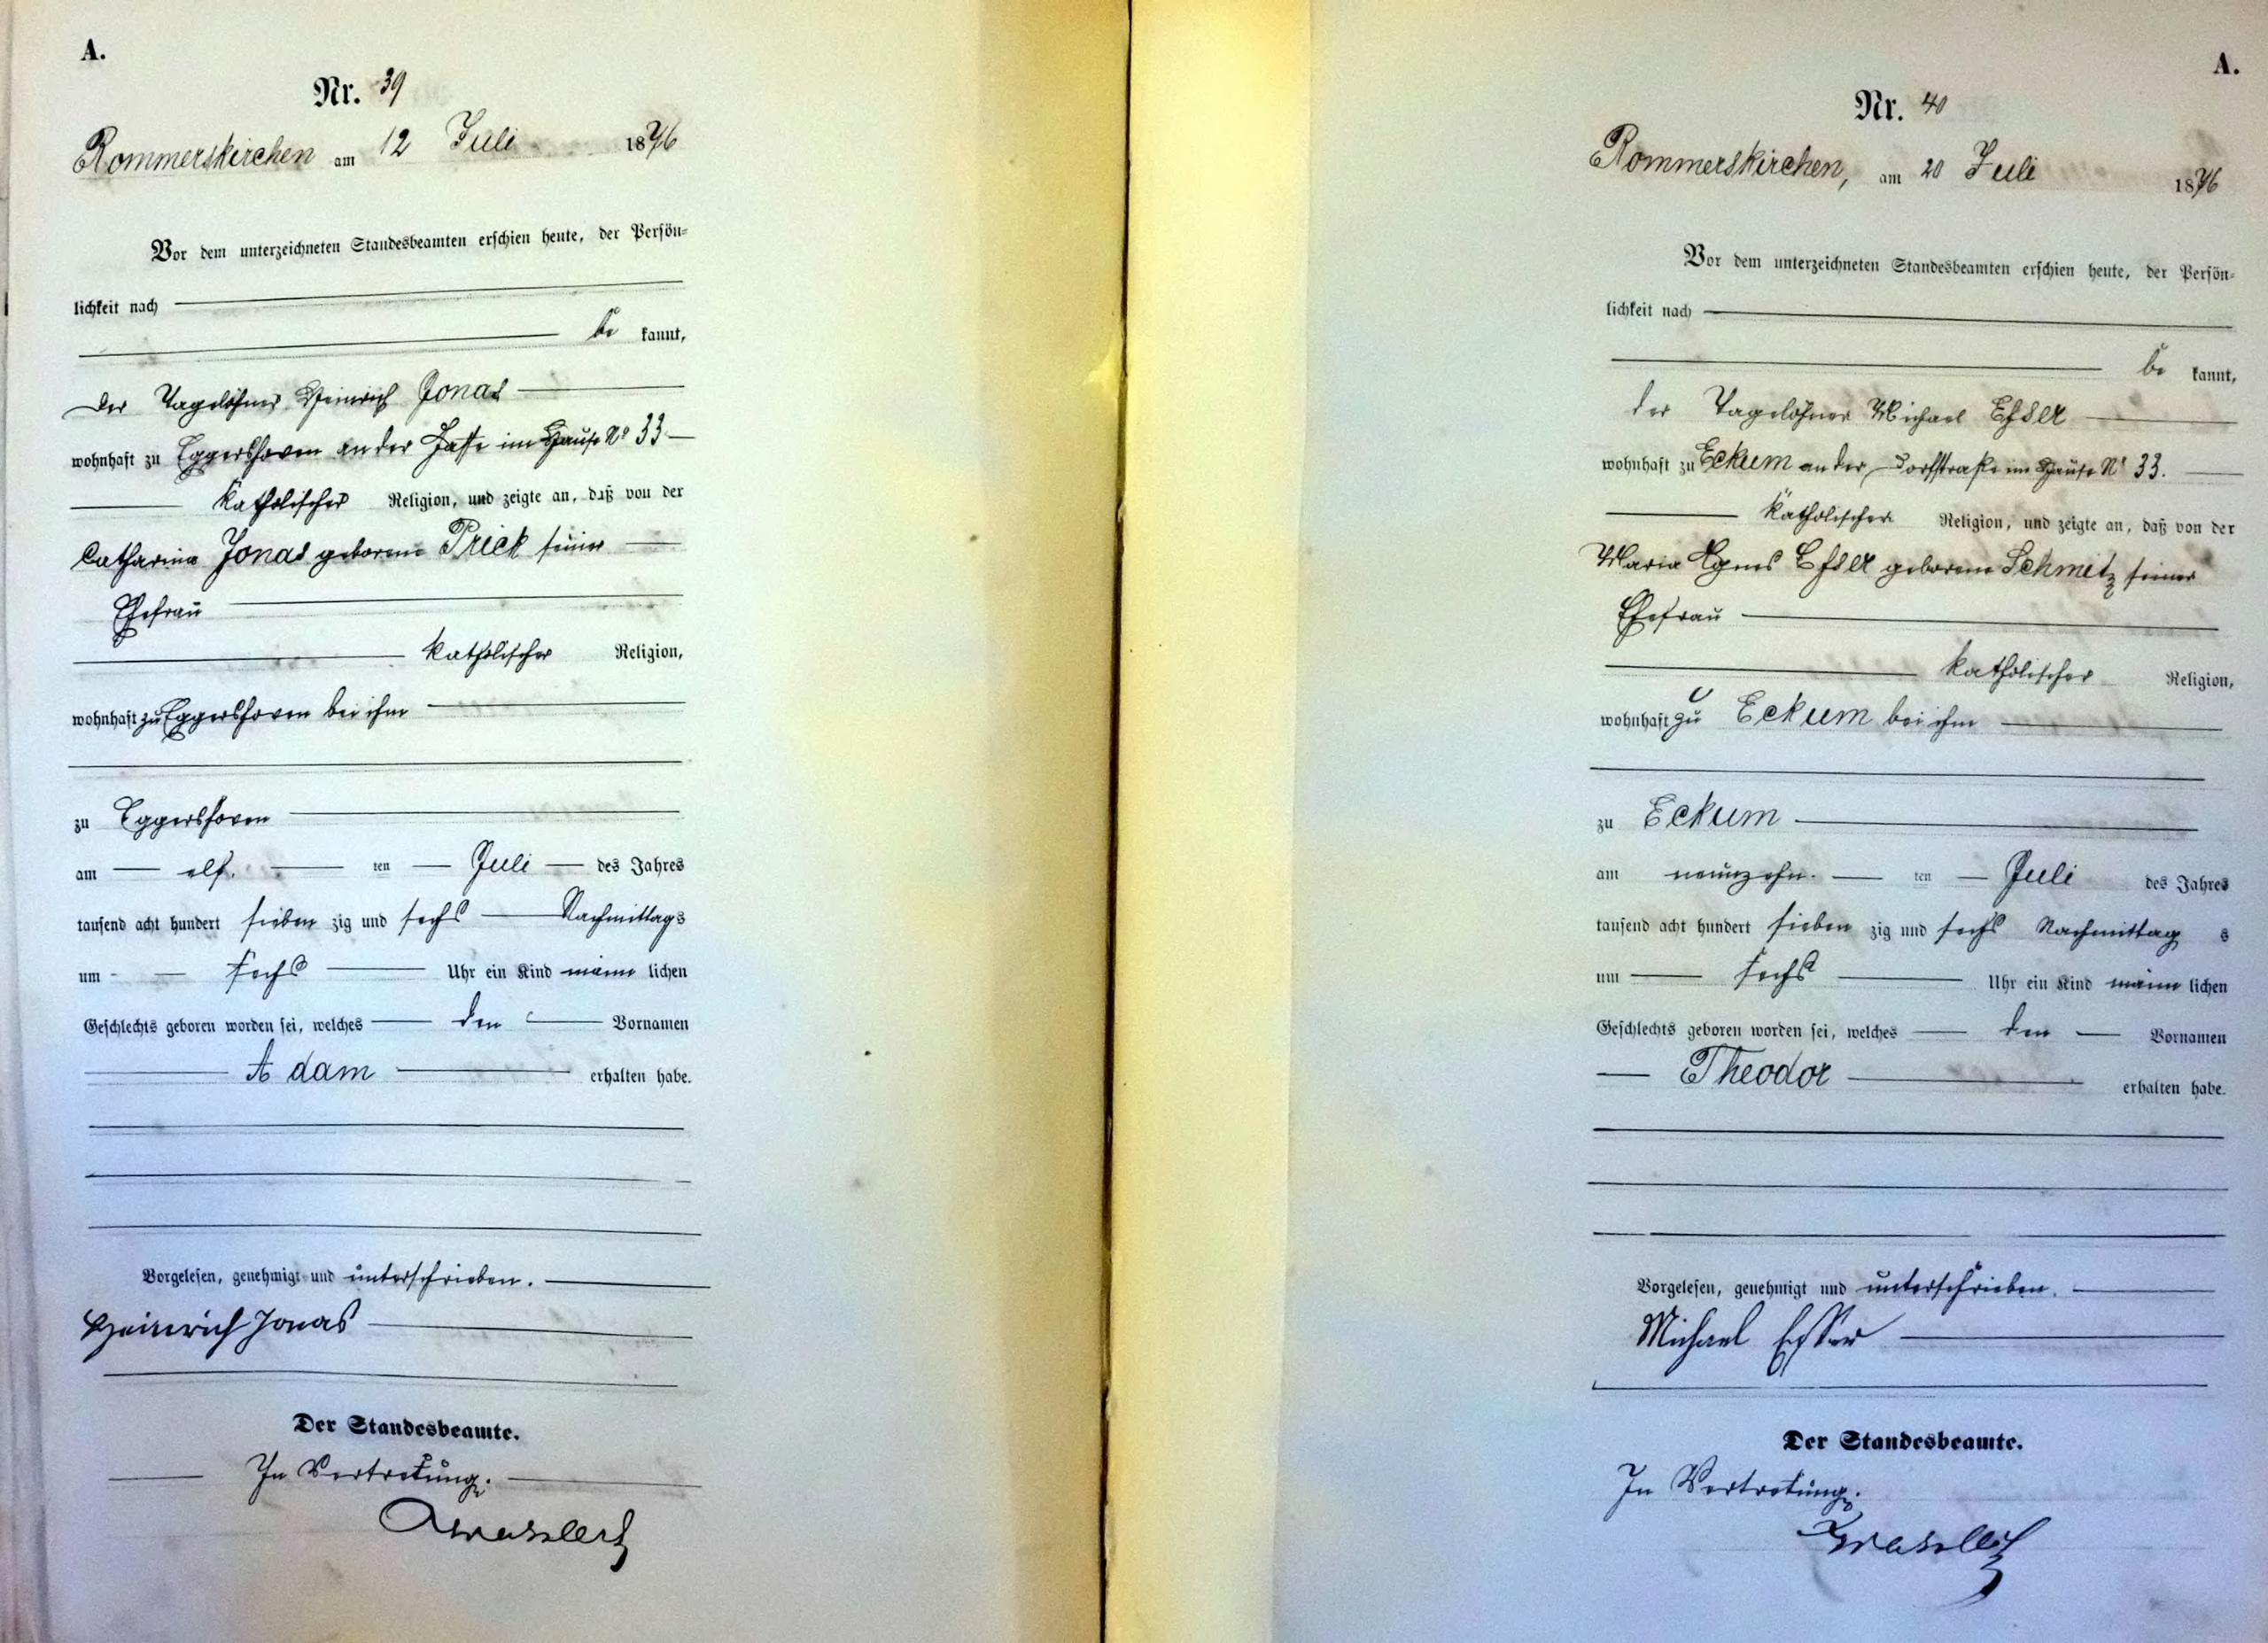 A.
Nr. 39
Rommerskirchen am 12 Juli 1876
Vor dem unterzeichneten Standesbeamten erschien heute, der Persön=
lichkeit nach
be kannt,
der Tagelöhner Heinrich Jonas
wohnhaft zu Eggershoven an der Gasse im Hause No 33
katholischer Religion, und zeigte an, daß von der
Catharina Jonas geborene Prick seiner
Ehefrau
katholischer Religion,
wohnhaft zu Eggershoven bei ihm
zu Eggershoven
am elf. ten Juli des Jahres
tausend acht hundert sieben zig und sechs Nachmittags
um sechs Uhr ein Kind männ lichen
Geschlechts geboren worden sei, welches den Vornamen
Adam erhalten habe.
Vorgelesen, genehmigt und unterschrieben.
Heinrich Jonas
Der Standesbeamte.
In Vertretung:
A.
Nr. 40
Rommerskirchen, am 20 Juli 1876
Vor dem unterzeichneten Standesbeamten erschien heute, der Persön=
lichkeit nach
be kannt,
der Tagelöhner Michael Esser
wohnhaft zu Eckum an der Dorfstraße im Hause No 33.
katholischer Religion, und zeigte an, daß von der
Maria Agnes Esser geborene Schmitz seiner
Ehefrau
katholischer Religion,
wohnhaft zu Eckum bei ihm
zu Eckum
am neunzehn. ten Juli des Jahres
tausend acht hundert sieben zig und sechs Nachmittag s
um sechs Uhr ein Kind männ lichen
Geschlechts geboren worden sei, welches den Vornamen
Theodor erhalten habe.
Vorgelesen, genehmigt und unterschrieben.
Michael Esser
Der Standesbeamte.
In Vertretung: